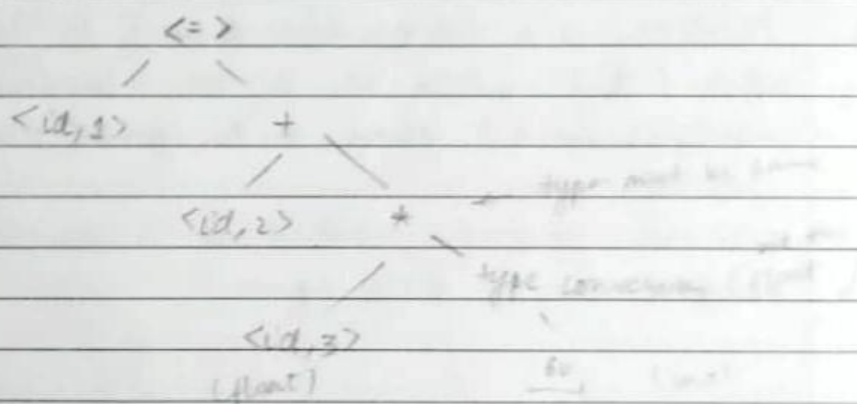 <=>
<id,1> +
<id,2> * ← type must be same
type conversion (float
<id,3>
(float) 60 (int)